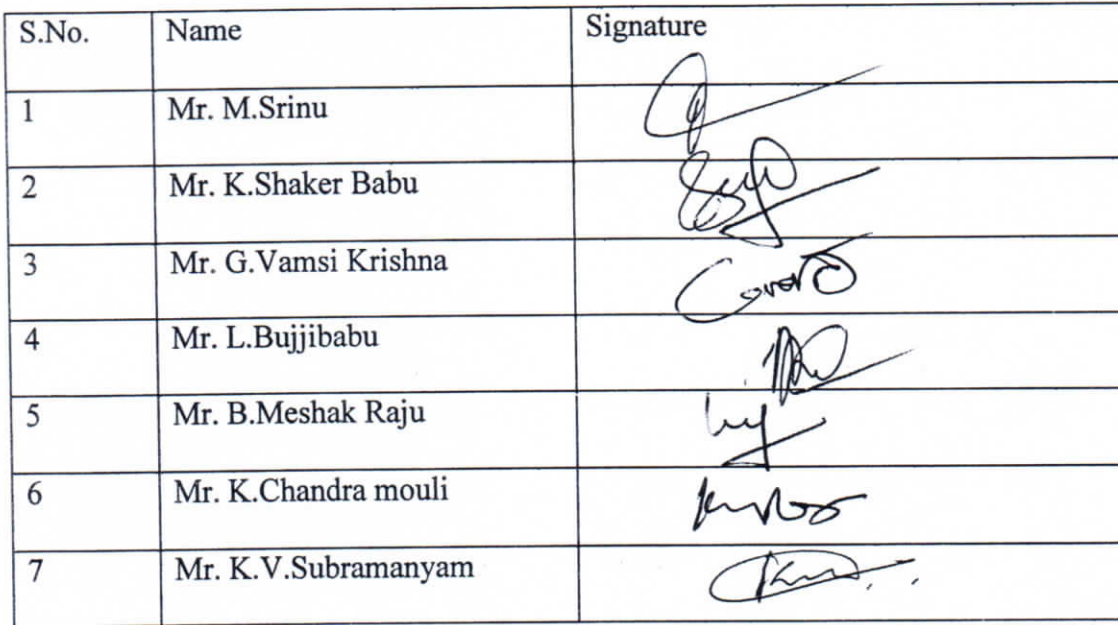 S.No. Name Signature
1 Mr. M.Srinu
2 Mr. K.Shaker Babu
3 Mr. G.Vamsi Krishna
4 Mr. L.Bujjibabu
5 Mr. B.Meshak Raju
6 Mr. K.Chandra mouli
7 Mr. K.V.Subramanyam